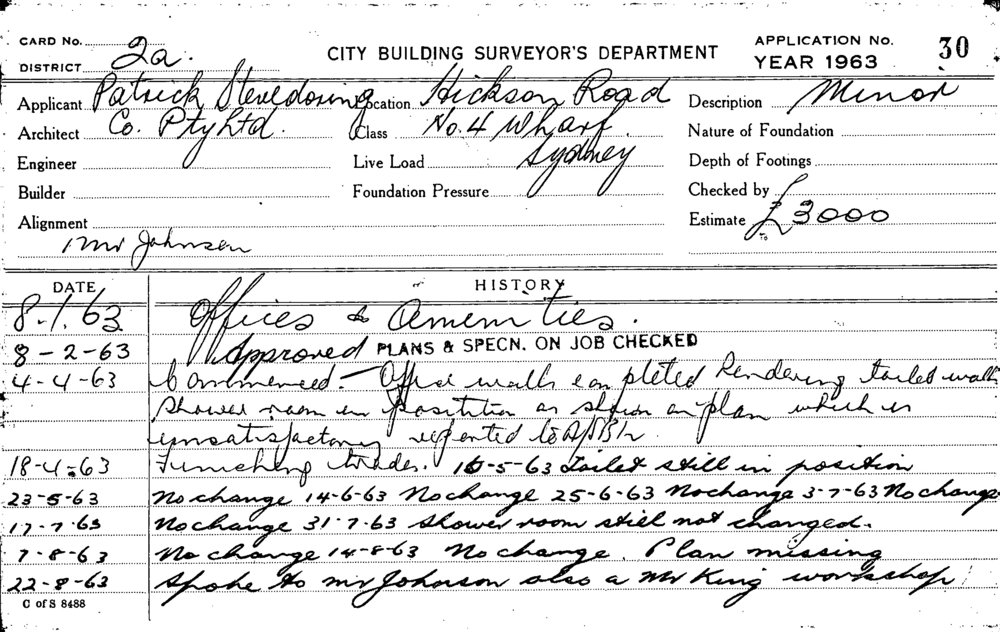 CARD No.
DISTRICT 2a.
CITY BUILDING SURVEYOR'S DEPARTMENT
APPLICATION No. 30
YEAR 1963
Applicant Patrick Stevedoring
Architect Co. Pty Ltd.
Engineer
Builder
Alignment
Mr Johnson
Location Hickson Road
Class No. 4 Wharf
Live Load Sydney
Foundation Pressure
Description Minor
Nature of Foundation
Depth of Footings
Checked by
Estimate £3000
DATE HISTORY
8.1.63 Offices & Amenities.
8-2-63 Approved PLANS & SPECN. ON JOB CHECKED
4-4-63 Commenced - Office walls completed Rendering toilet walls
Shower room in position as shown on plan which is
unsatisfactory reported to
18-4-63 Finishing trades. 10-5-63 Toilet still in position
23-5-63 No change 14-6-63 No change 25-6-63 No change 3-7-63 No change
17-7-63 No change 31-7-63 Shower room still not changed.
7-8-63 No change 14-8-63 No change. Plan missing
22-8-63 Spoke to Mr Johnson also a Mr King workshop
C of S 8488